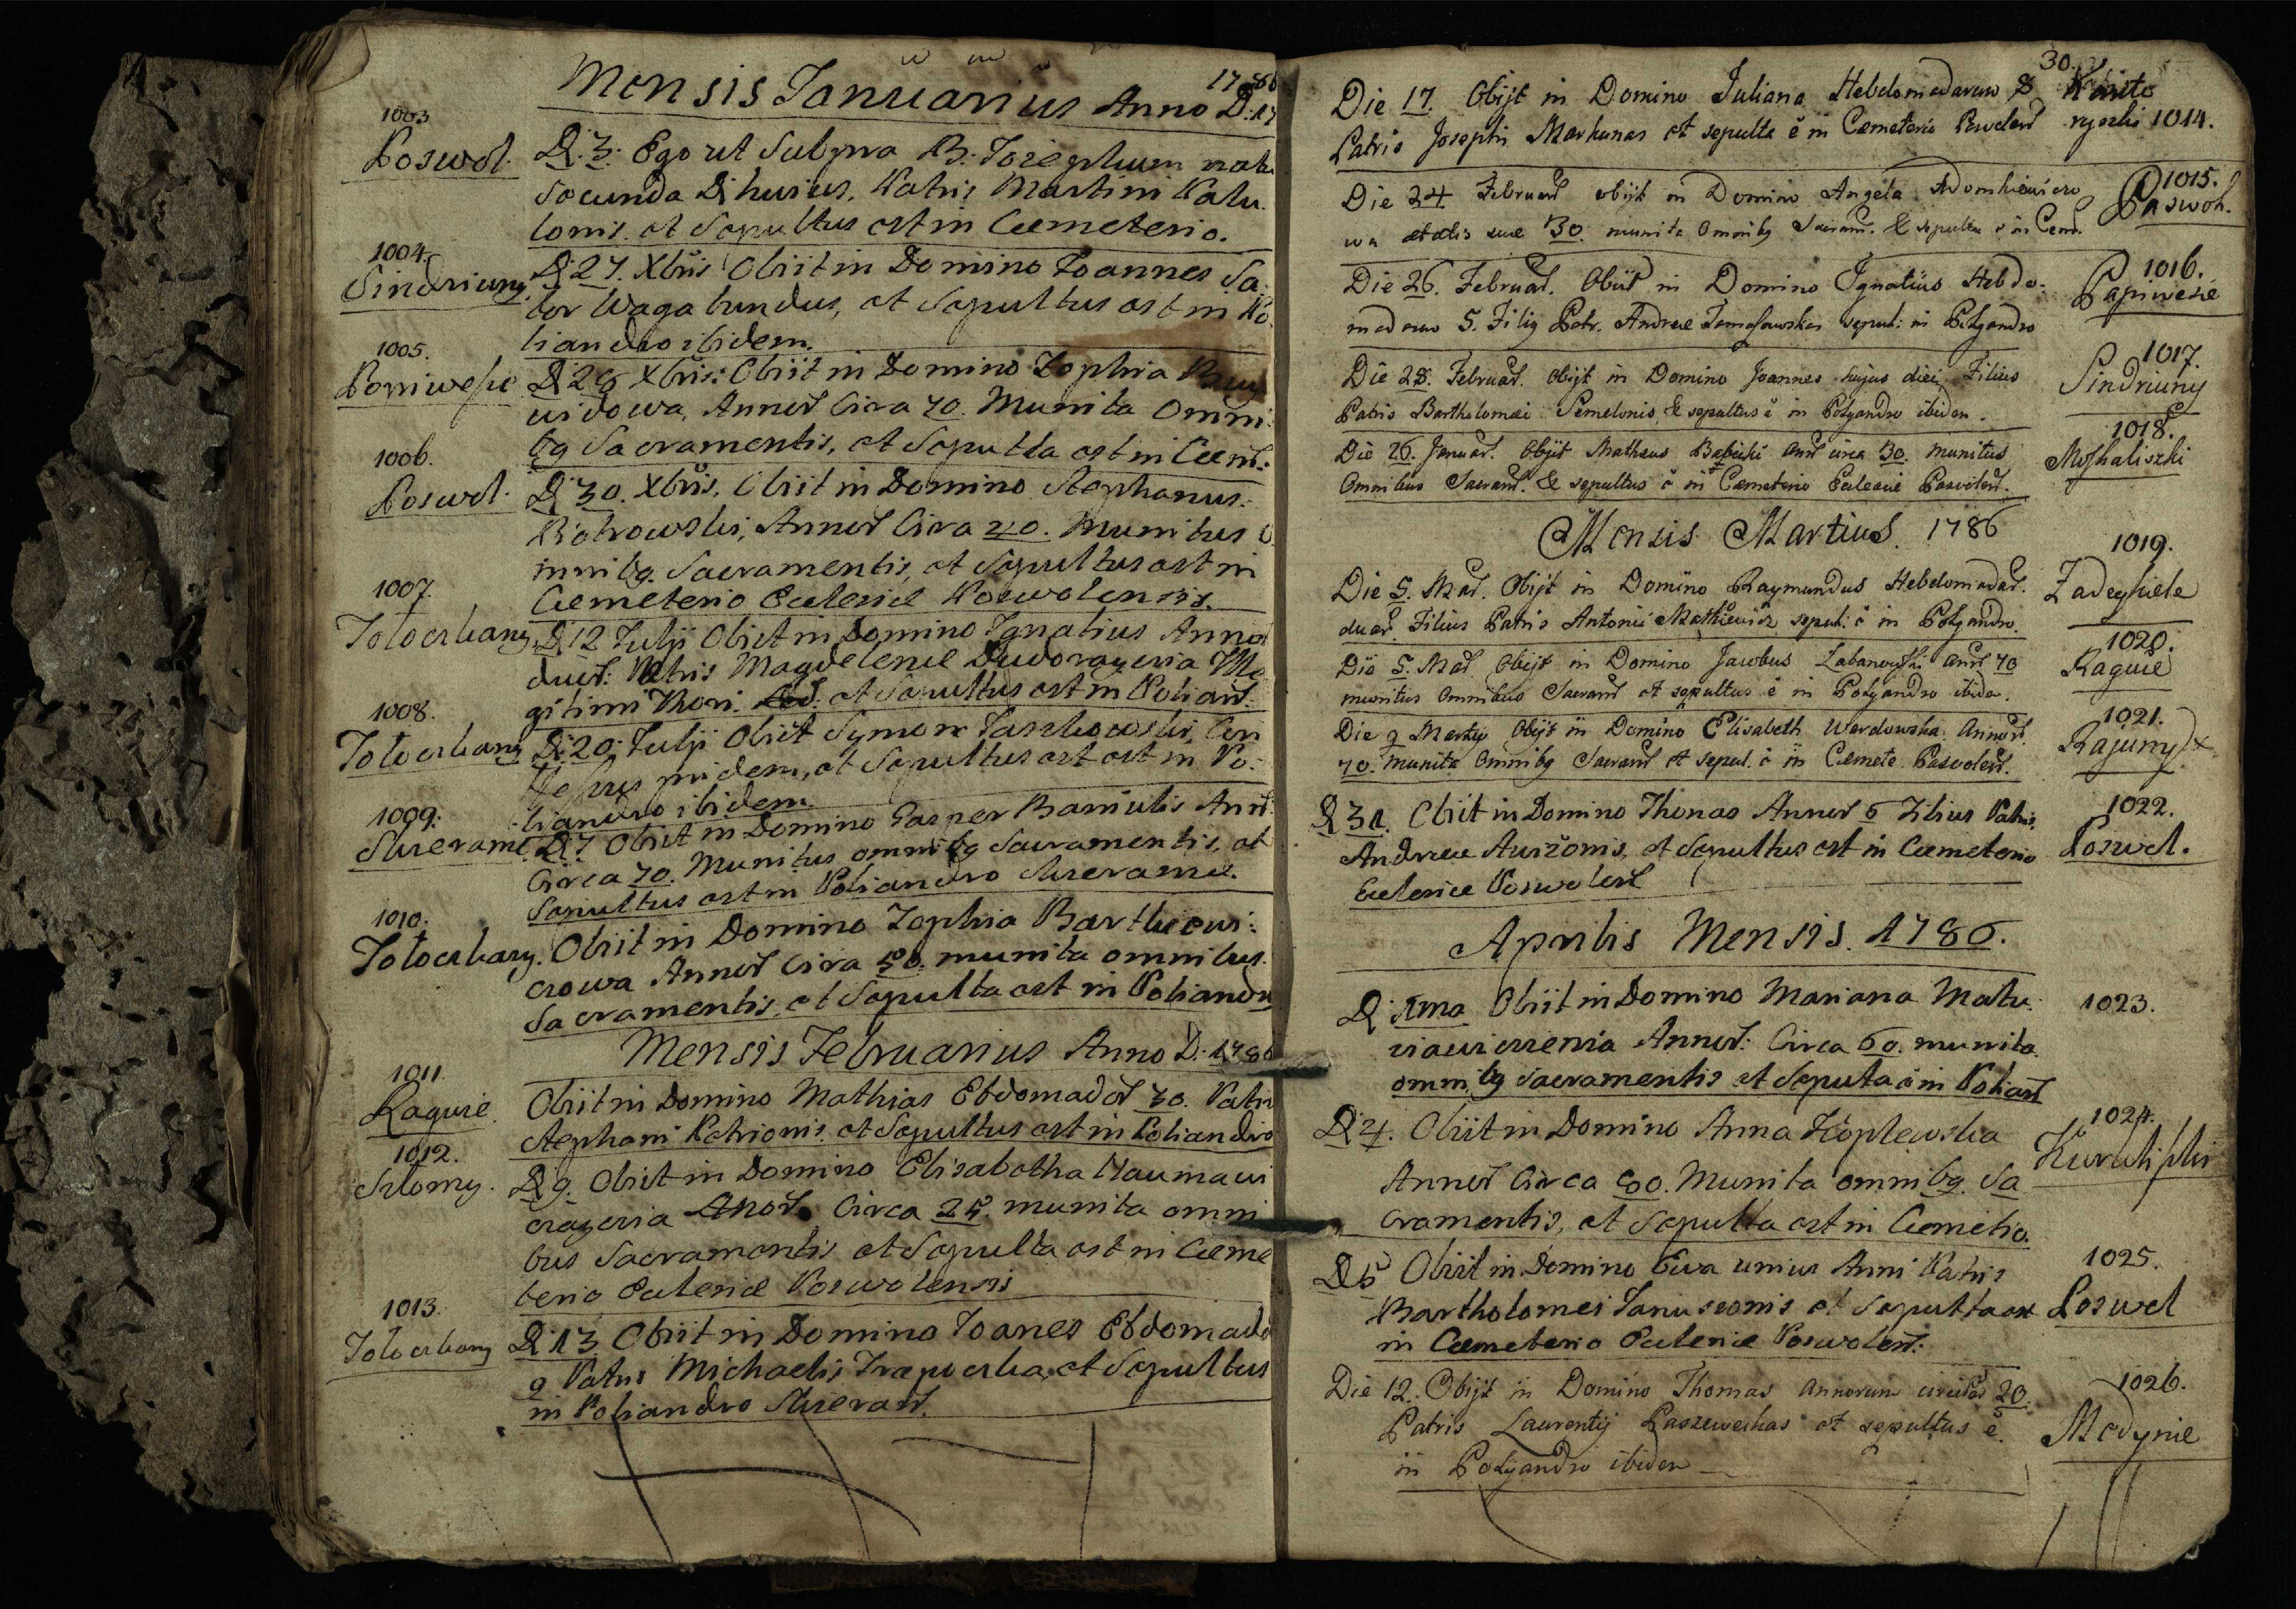 Mensis Januarius Anno D: 17
1786
1003
Poswol.
D. 3. Ego ut Supra B. Josephum natu
Secunda D hujus, Patris Martini
lonis. et Sepultus est in Cæmeterio.
1004.
Sindriuny
D 27. Xbris Obiit in Domino Joannes Sa
tor Wagabundus, et Sepultus est in Po
liandro ibidem.
1005.
D 26 Xbris: Obiit in Domino Zophia
widowa, Annor Circa 70. Munita Omni
bq Sacramentis, et Sepulta est in Cæm:
1006.
Poswol.
D 30. Xbris, Obiit in Domino Stephanus.
Piotrowski, Annor Circa 40. Munitus O
mnibq. Sacramentis, et Sepultus est in
Cæmeterio Eclesiæ Poswolensis.
1007.
Totoczkany
D 12 Julji Obiit in Domino Ignatius Annor
duor: Matris Magdelenæ
gitimi Thori. et Sepultus est in Poliand.
1008.
Totoczkany
D 20. Julji Obiit Symon Jaszkowski,
pridem, et Sepultus est est in Po:
liandro ibidem
1009.
D 7. Obiit in Domino Casper Baniulis Ann:
Circa 70. Munitus omnibq Sacramentis, et
Sepultus est in Poliandro
1010.
Totoczkany.
Obiit in Domino Zophia Bartkiewi:
czowa Annor Circa 50. munita omnibus
Sacramentis, et Sepulta est in Poliandro
Mensis Februarius Anno D: 1786
1011.
Raguie
Obiit in Domino Mathias Ebdomador 30. Patris
Stephani Petrionis et Sepultus est in Poliandro
1012.
D 9. Obiit in Domino Elisabetha Naumawi
Annor. Circa 25. munita omni
bus Sacramentis et Sepulta est in Cæme
terio Eclesiæ Poswolensis
1013.
Totoczkany
D 13 Obiit in Domino Joanes Ebdomado
9 Patris Michaelis et Sepultus
in Poliandro
30.
Die 17. Obijt in Domino Juliana Hebdomadarum 8
Patris Josephi Markunas et sepulta ē in Cæmeterio
1014.
Die 24 Februar obijt in Domino Angela Adomkiewiczo
wa ætatis suæ 30. munita Omnibq Sacram. & sepulta ē in Cem.
1015.
Paswoł.
Die 26. Februar. Obiit in Domino Ignatius Hebdo:
madarum 5. Filiq Patr. Andreæ sepul: in Polyandro
1016.
Papiwesie
Die 28. Februar. Obijt in Domino Joannes hujus diei Filius
Patris Bartholomæi Semelonis, & sepultus ē in Polyandro ibidem.
1017.
Sindriuny
Die 26. Januar. Obijt Matheus Babicki Ann circa 30. munitus
Omnibus Sacram. & sepultus ē in Cæmeterio Eclesiæ Paswolen.
1018.
Moshaliszki
Mensis Martius. 1786
Die 5. Mar. Obijt in Domino Raymundus Hebdomadar.
duar. Filius Patris Antonii Mackiewicz sepul: ē in Polyandro.
1019.
Zadeykiele
Die 5. Mar. Obijt in Domino Jacobus Łabanowski Ann 70
munitus Omnibus Sacram et sepultus ē in Polyandro ibidem.
1020.
Raguie
Die 9 Martij Obijt in Domino Elisabeth Werdowska. Annor.
70. munita Omnibq Sacram et sepul. ē in Cæmete. Paswolen.
1021.
Rajuny
D 31. Obiit in Domino Thomas Annor 6 Filius Patris
Andreæ Auiżonis, et Sepultus est in Cæmeterio
Eclesiæ Poswolens
1022.
Poswol.
Aprilis Mensis. 1786.
D. 1ma Obiit in Domino Mariana Matu
Annor: Circa 60. munita
omnibq Sacramentis et Sepulta ē in Poliand
1023.
D. 4. Obiit in Domino Anna Koplewska
Annor Circa 60. Munita omnibq. Sa
cramentis, et Sepulta est in Cæmetio.
1024.
D 5 Obiit in Domino Ewa unius Anni Patris
Bartholomei Januszonis et Sepulta est
in Cæmeterio Eclesiæ Poswolens.
1025.
Poswol
Die 12. Obijt in Domino Thomas Annorum circiter 20.
Patris Laurentij Paszewickas et sepultus ē
in Polyandro ibidem
1026.
Medynie